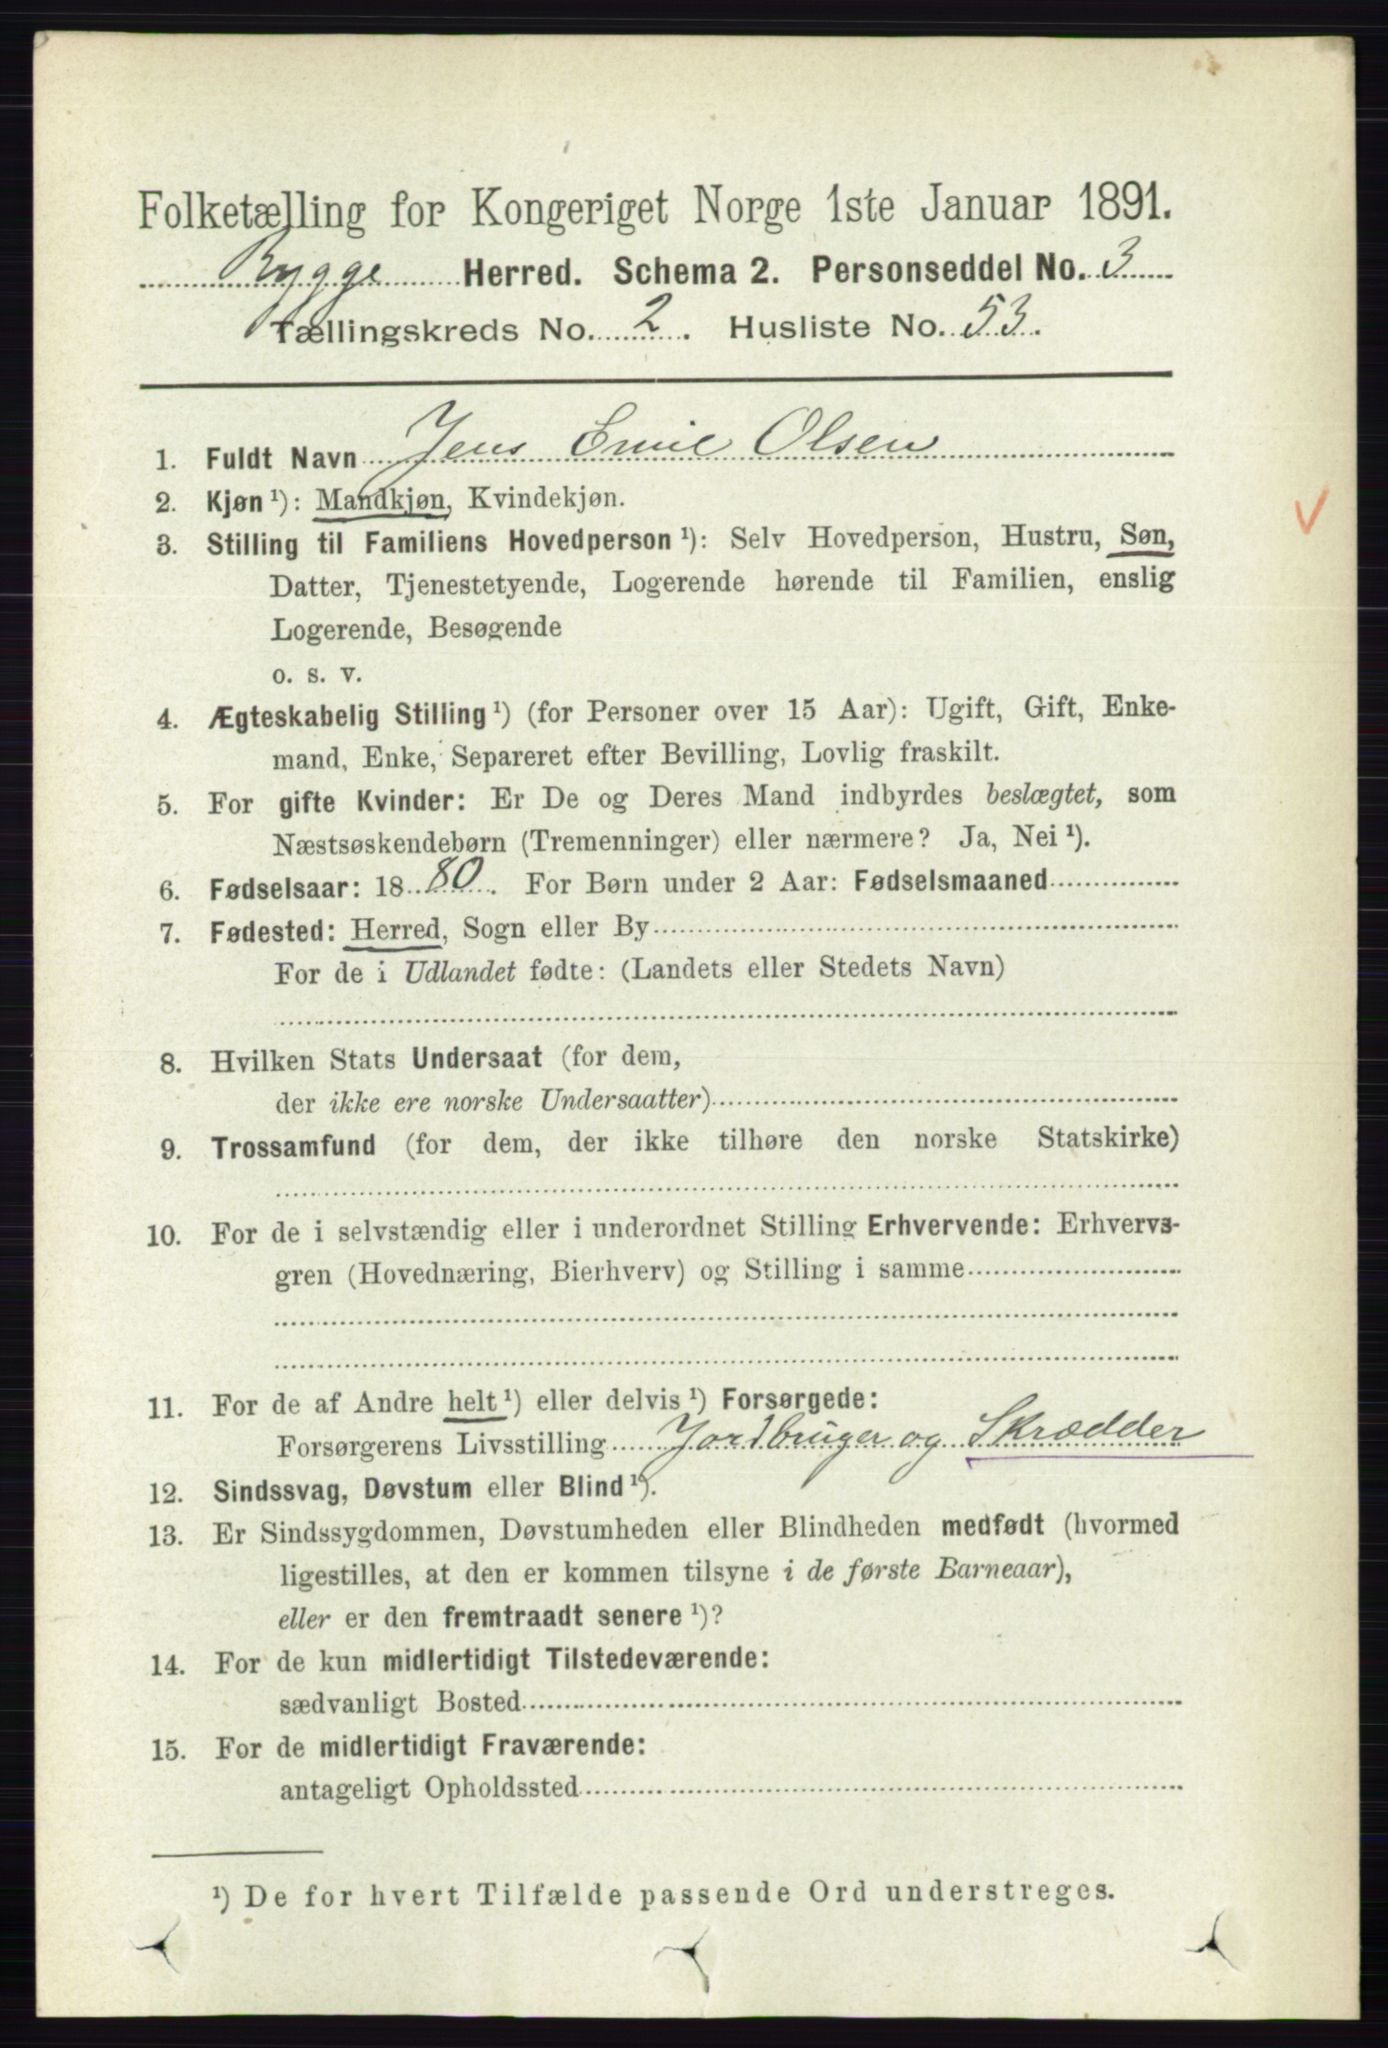 Folketælling for Kongeriget Norge 1ste Januar 1891.
Rygge Herred. Schema 2. Personseddel No. 3
Tællingskreds No. 2. Husliste No. 53.
1. Fuldt Navn Jens Emil Olsen
2. Kjøn ¹): Mandkjøn, Kvindekjøn.
3. Stilling til Familiens Hovedperson ¹): Selv Hovedperson, Hustru, Søn,
Datter, Tjenestetyende, Logerende hørende til Familien, enslig
Logerende, Besøgende
o. s. v.
4. Ægteskabelig Stilling ¹) (for Personer over 15 Aar): Ugift, Gift, Enke-
mand, Enke, Separeret efter Bevilling, Lovlig fraskilt.
5. For gifte Kvinder: Er De og Deres Mand indbyrdes beslægtet, som
Næstsøskendebørn (Tremenninger) eller nærmere? Ja, Nei ¹).
6. Fødselsaar: 1880. For Børn under 2 Aar: Fødselsmaaned
7. Fødested: Herred, Sogn eller By
For de i Udlandet fødte: (Landets eller Stedets Navn)
8. Hvilken Stats Undersaat (for dem,
der ikke ere norske Undersaatter)
9. Trossamfund (for dem, der ikke tilhøre den norske Statskirke)
10. For de i selvstændig eller i underordnet Stilling Erhvervende: Erhvervs-
gren (Hovednæring, Bierhverv) og Stilling i samme
11. For de af Andre helt ¹) eller delvis ¹) Forsørgede:
Forsørgerens Livsstilling Jordbruger og Skrædder
12. Sindssvag, Døvstum eller Blind ¹).
13. Er Sindssygdommen, Døvstumheden eller Blindheden medfødt (hvormed
ligestilles, at den er kommen tilsyne i de første Barneaar),
eller er den fremtraadt senere ¹)?
14. For de kun midlertidigt Tilstedeværende:
sædvanligt Bosted
15. For de midlertidigt Fraværende:
antageligt Opholdssted
¹) De for hvert Tilfælde passende Ord understreges.